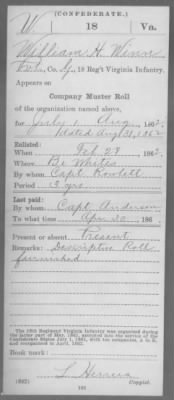 (CONFEDERATE.)
W 18 Va.
William H. Winn
Pvt., Co. G, 18 Reg't Virginia Infantry.
Appears on
Company Muster Roll
of the organization named above,
for July & Aug, 1862.
dated Aug 31, 1862
Enlisted:
When Feb 28, 1862.
Where
By whom Capt Rowlett
Period 3 yrs
Last paid:
By whom Capt. Anderson
To what time Apr 30, 186
Present or absent Present
Remarks: Descriptive Roll
furnished
The 18th Regiment Virginia Infantry was organized during the
latter part of May, 1861, accepted into the service of the
Confederate States July 1, 1861, with ten companies, A to K,
and reorganized in April, 1862.
Book mark:
(642)
Copyist.